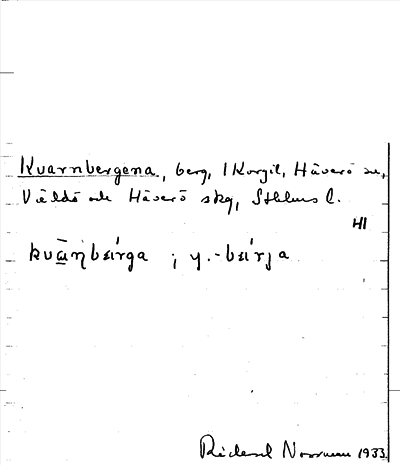 Kvarnbergena, berg, 1 Korgil, Häverö sn,
Väddö och Häverö skg, Sthlms l.
HI
kvàrṇbærga ; y. -bærja
Rickard Norrman 1933.